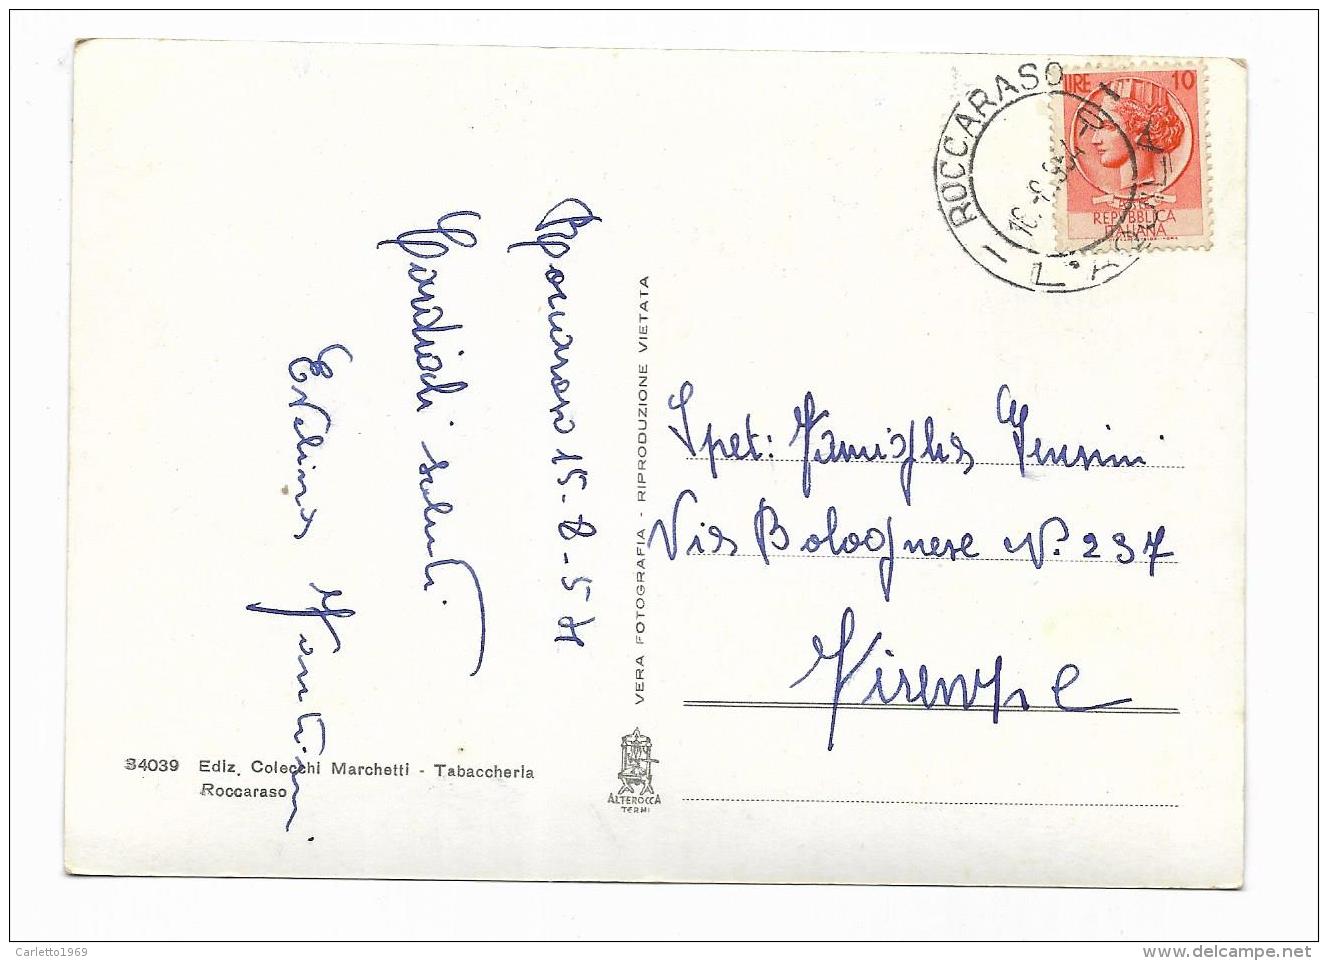 Roccaraso 15-8-54
Cordiali saluti
Evelina
34039 Ediz. Colecchi Marchetti - Tabaccheria
Roccaraso
VERA FOTOGRAFIA - RIPRODUZIONE VIETATA
ALTEROCCA
TERNI
ROCCARASO
L'AQUILA
LIRE 10
REPUBBLICA
ITALIANA
Spet: Famiglia
Via Bolognese N. 237
Firenze
Carletto1969
www.delcampe.net